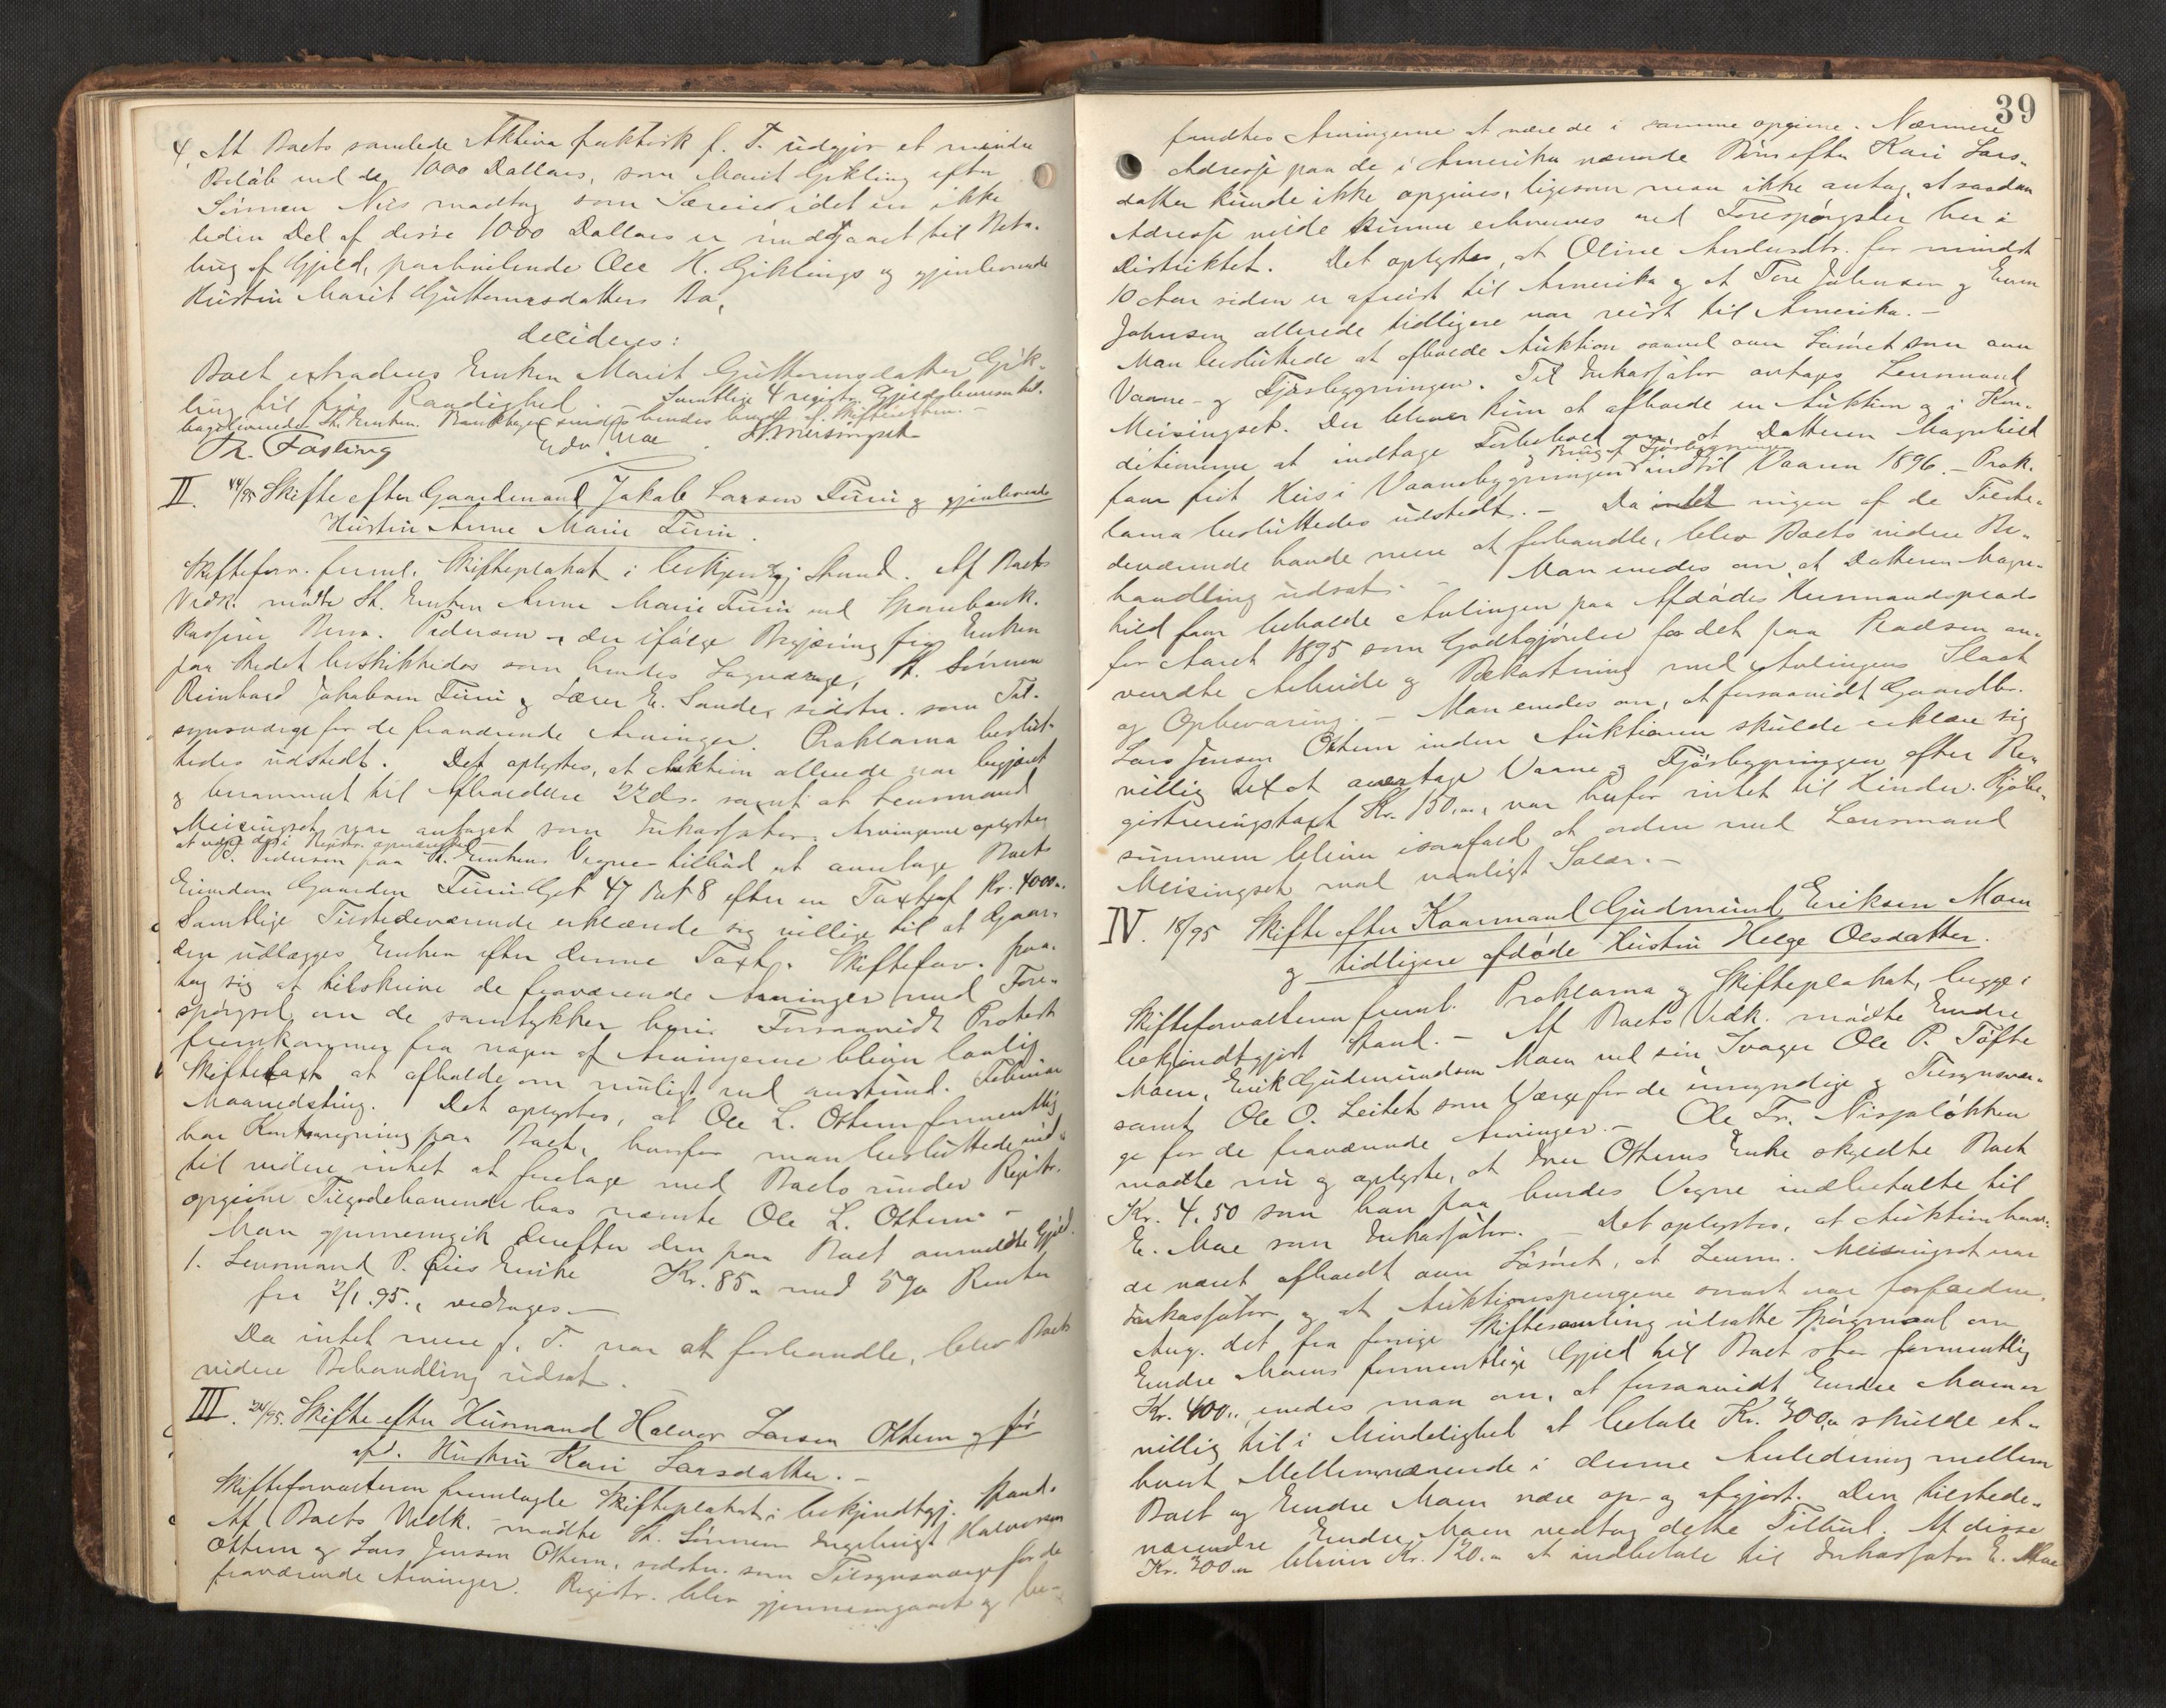 4. At Boets samlede Aktiva faktisk f. T. udgjør et mindre
Beløb end de 1000 Dollars, som Marit Gikling efter
Sønnen Nils modtog som Særeie idet en ikke
liden Del af disse 1000 Dollars er indgaaet til Beta-
ling af Gjeld, paahvilende Ole H. Giklings og gjenlevende
Hustru Marit Guttormsdatters Bo,
decideres:
Boet extraderes Enken Marit Guttormsdatter Gik-
ling til fri Raadighed. Samtlige 4 registr. Gjeldsbeviser til-
bageleveredes St. Enken. Bankbogen sendes hendes
Th. Fasting Edv. Moe Meisingset
II. 14/95 Skifte efter Gaardmand Jakob Larsen Furu og gjenlevende
Hustru Anne Marie Furu.
Skifteforv. freml. Skifteplakat i bekjendtgj. Stand. Af Boets
Vedk. mødte St. Enken Anne Marie Furu med Sparebank-
kasserer Pedersen, der ifølge Begjæring fra Enken
paa Stedet beskikkedes som hendes Lagværge, St. Sønnen
Reinhard Jakobsen Furu og Lærer E. Sande, sidstn. som Til-
synsværge for de fraværende Arvinger. Proklama beslut-
tedes udstedt. Det oplystes, at Auktion allerede var begjæret
og berammet til Afholdelse 22 ds. samt at Lensmand
Meisingset var antaget som Inkassator. Arvingerne oplystes
at være de i Registr. opnævnte.
Pedersen paa St. Enkens Vegne tilbød at overtage Boets
Eiendom Gaarden Furu Gst 47 Bst 8 efter en Taxt af Kr. 4000.
Samtlige Tilstedeværende erklærede sig villige til at Gaar-
den udlægges Enken efter denne Taxt. Skifteforv. paa-
tog sig at tilskrive de fraværende Arvinger med Fore-
spørgsel om de samtykker heri. Forsaavidt Protest
fremkommer fra nogen af Arvingerne bliver lovlig
Skiftetaxt at afholde om muligt ved anstund. Februar
Maanedsting. Det oplystes, at Ole L. Ottem formentlig
har Kontraregning paa Boet, hvorfor man besluttede ind-
til videre intet at foretage med Boets under Registr.
opgivne Tilgodehavende hos nævnte Ole L. Ottem. —
Man gjennemgik derefter den paa Boet anmeldte Gjeld.
1. Lensmand P. Enke Kr. 85.- med 5% Renter
fra 2/1.95., vedtoges.—
Da intet mere f. T. var at forhandle, blev Boets
videre Behandling udsat.
III. 24/95. Skifte efter Husmand Halvor Larsen Ottem og før
afd. Hustru Kari Larsdatter.—
Skifteforvalteren fremlagte Skifteplakat i bekjendtgj. Stand.
Af Boets Vedk. mødte St. Sønnen Ingebrigt Halvorsen
Ottem og Lars Jensen Ottem, sidstn. som Tilsynsværge for de
fraværende Arvinger. Registr. blev gjennemgaaet og be-
39
fandtes Arvingerne at være de i samme opgivne. Nærmere
Adresse paa de i Amerika værende Børn efter Kari Lars-
datter kunde ikke opgives, ligesom man ikke antog, at saadan
Adresse vilde kunne erhverves ved Forespørgsler her i
Distriktet. Det oplystes, at Oline Andersdtr. for mindst
10 Aar siden er afreist til Amerika og at Tore Johnsen og Even
Johnsen allerede tidligere var reist til Amerika. —
Man besluttede at afholde Auktion saavel over Løsøret som over
Vaane- og Fjøsbygningen. Til Inkassator antages Lensmand
Meisingset. Der bliver kun at afholde en Auktion og i Kon-
ditionerne at indtage Forbehold om, at Datteren Magnhild
og Brug af Fjøsbygningen
faar frit Hus i Vaanebygningen indtil Vaaren 1896. — Prok-
lama besluttedes udstedt. — Da ingen af de Tilste-
deværende havde mere at forhandle, blev Boets videre Be-
handling udsat. — Man enedes om, at Datteren Magn-
hild faar beholde Avlingen paa Afdødes Husmandsplads
for Aaret 1895 som Godtgjørelse for det paa Pladsen an-
vendte Arbeide og Bekostning med Avlingens Slaat
og Opbevaring. — Man enedes om, at forsaavidt Gaardbr.
Lars Jensen Ottem inden Auktionen skulde erklære sig
villig til at overtage Vaane- og Fjøsbygningen efter Re-
gistreringstaxt Kr. 150.-, var herfor intet til Hinder. Kjøbe-
summen bliver isaafald at ordne med Lensmand
Meisingset mod vanligt Salær.—
IV. 18/95 Skifte efter Kaarmand Gudmund Eriksen Moen
og tidligere afdøde Hustru Helge Olsdatter.
Skifteforvalteren freml. Proklama og Skifteplakat, begge i
bekjendtgjort Stand. — Af Boets Vedk. mødte Endre
Moen, Erik Gudmundsen Moen med sin Svoger Ole P. Tøfte
samt Ole O. Leitet som Værge for de umyndige og Tilsynsvær-
ge for de fraværende Arvinger. — Ole Tr. Nisjaløkken
mødte nu og oplyste, at Iver Ottems Enke skyldte Boet
Kr. 4.50 som han paa hendes Vegne indbetalte til
E. Moe som Inkassator. — Det oplystes, at Auktion hav-
de været afholdt over Løsøret, at Lensm. Meisingset var
Inkassator og at Auktionspengene snart var forfaldne.
Ang. det fra forrige Skiftesamling udsatte Spørgsmaal om
Endre Moens formentlige Gjeld til Boet stor formentlig
Kr. 400.., enedes man om, at forsaavidt Endre Moen er
villig til i Mindelighed at betale Kr. 300.- skulde et-
hvert Mellemværende i denne Anledning mellem
Boet og Endre Moen være op- og afgjort. Den tilstede-
værende Endre Moen vedtog dette Tilbud. Af disse
Kr. 300.- bliver Kr. 120.- at indbetale til Inkassator E. Moe